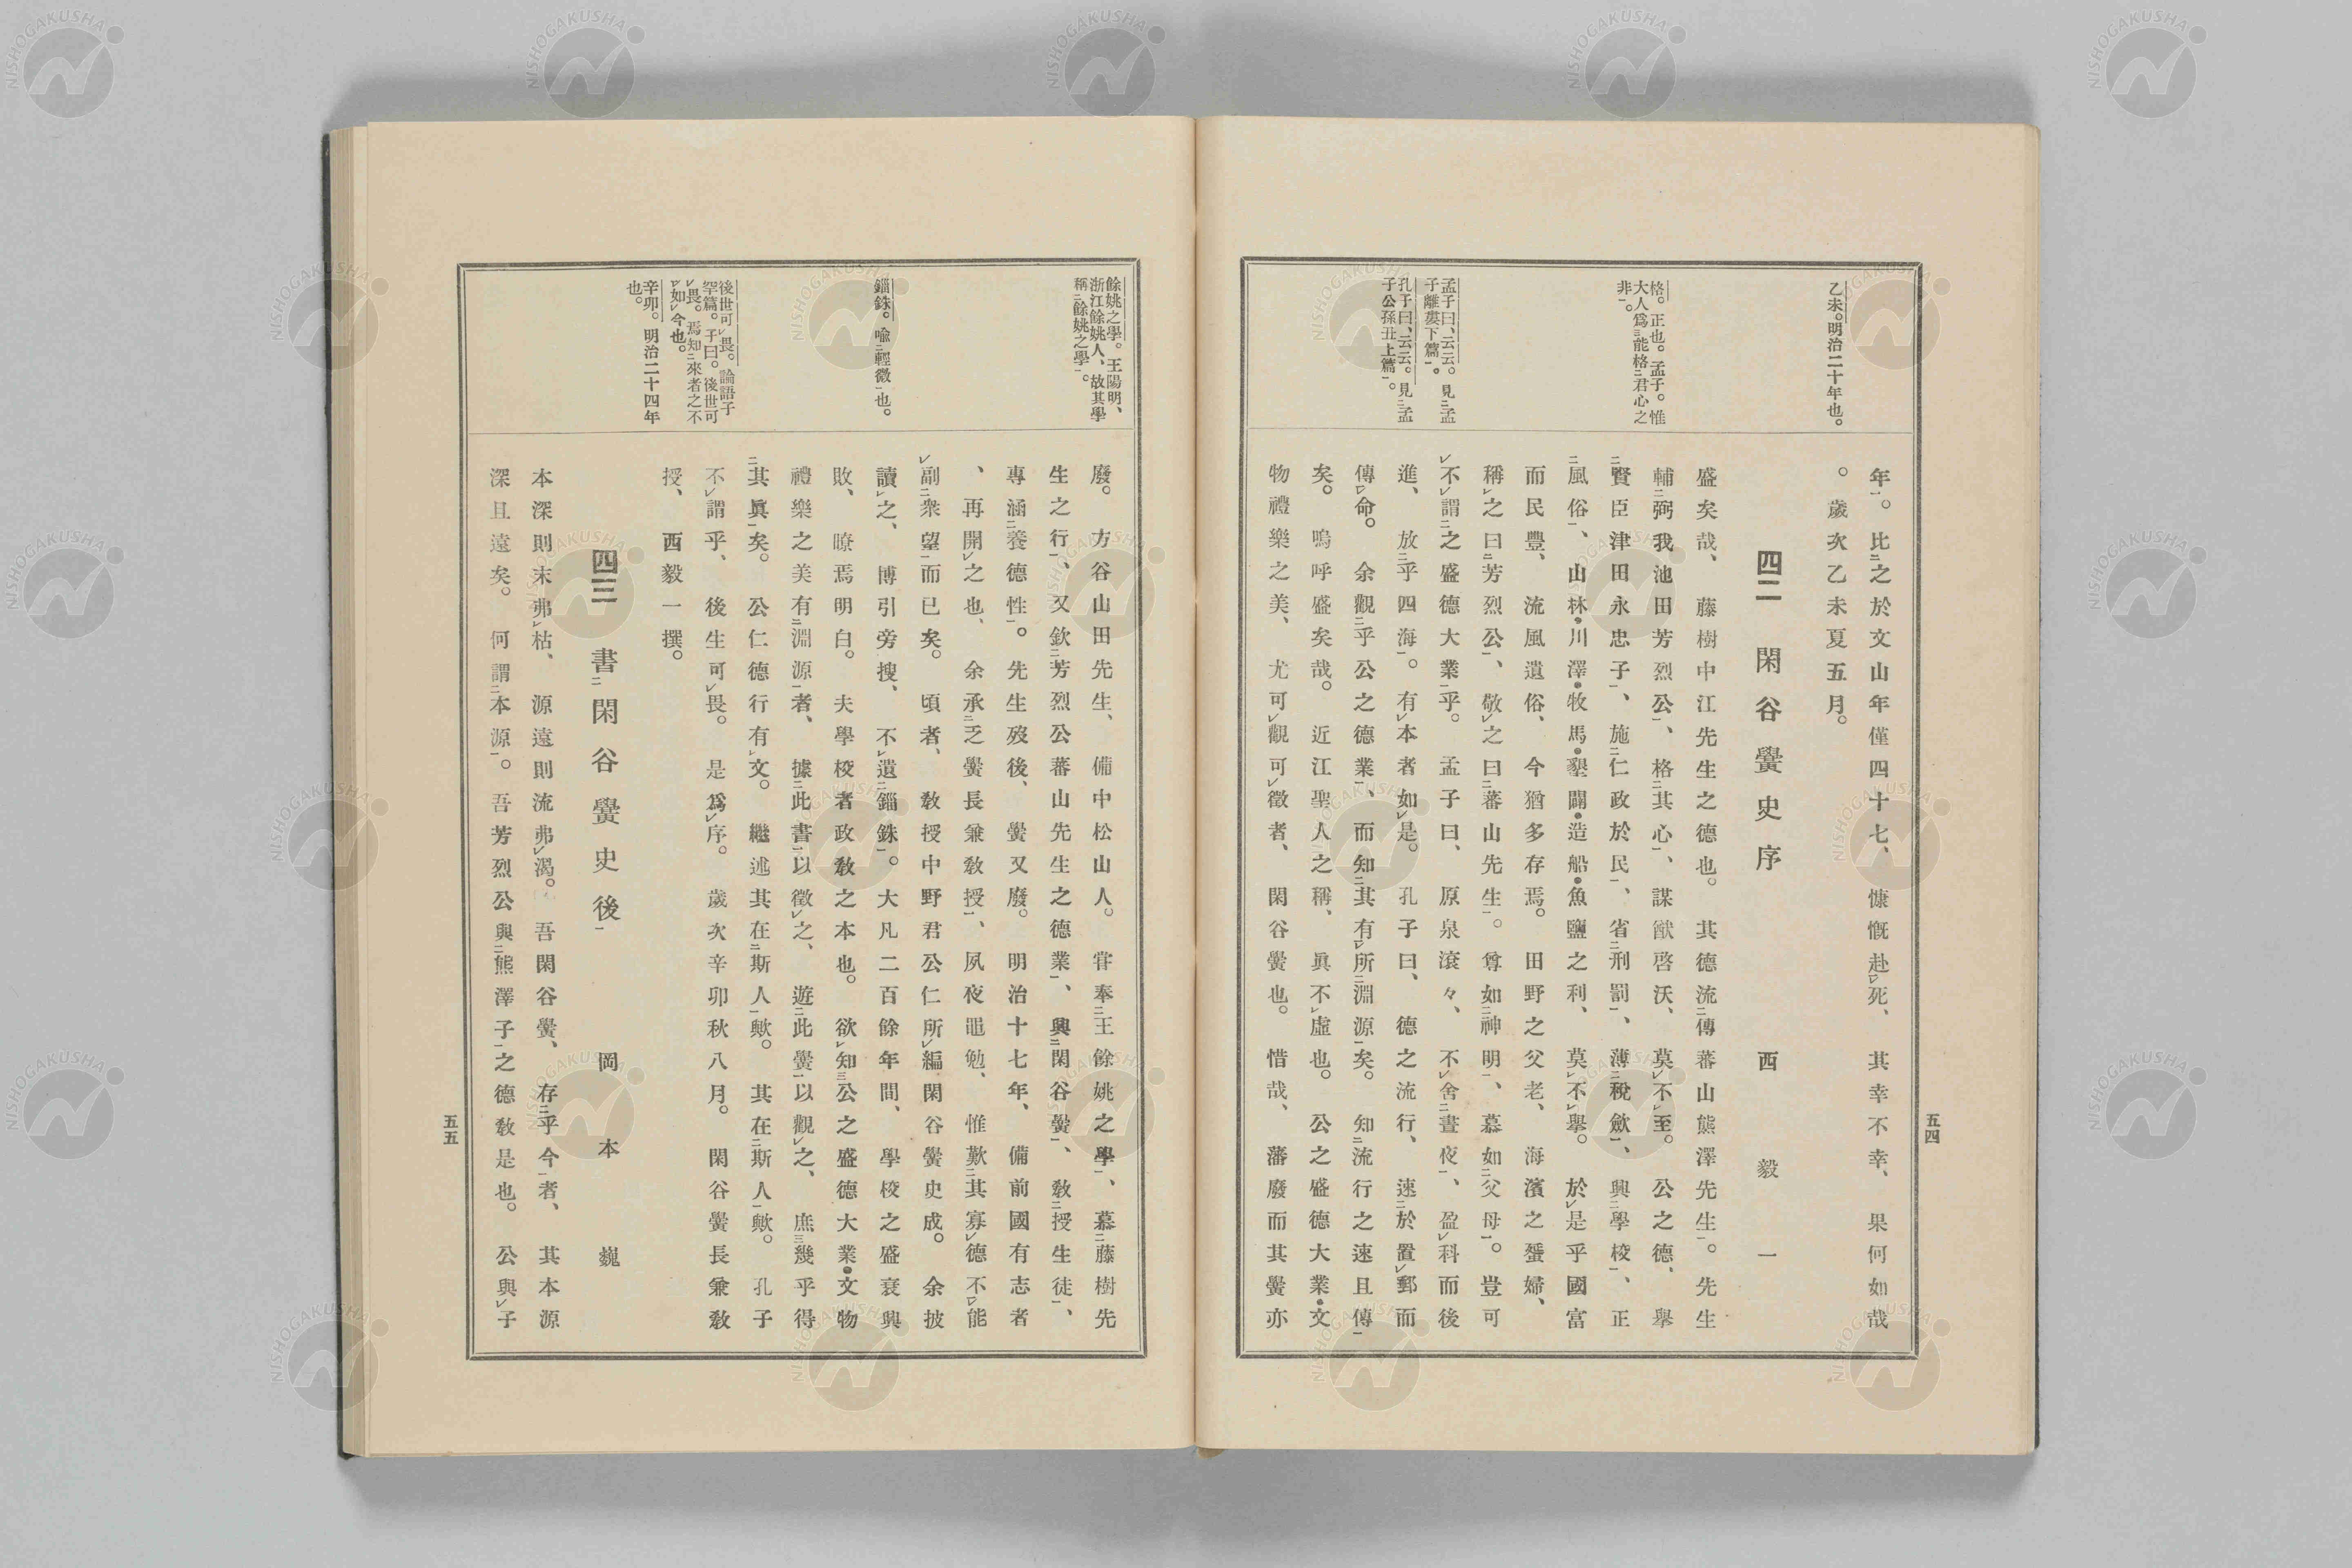 五四
乙未。明治二十年也。
格。正也。孟子。惟
大人爲三能格二君心之
非一。
孟子曰、云云。見二孟
子離婁下篇一。
孔子曰、云云。見二孟
子公孫丑上篇一。
年一。比二之於文山年僅四十七、慷慨赴レ死、其幸不幸、果何如哉
。歲次乙未夏五月。
四二 閑谷黌史序 西毅一
盛矣哉、藤樹中江先生之德也。其德流二傳蕃山熊澤先生一。先生
輔二弼我池田芳烈公一、格二其心一、謀猷啓沃、莫レ不レ至。公之德、擧二
賢臣津田永忠子一、施二仁政於民一、省二刑罰一、薄二稅歛一、興二學校一、正二
風俗一、山林・川澤・牧馬・墾闢・造船・魚鹽之利、莫レ不レ擧。於レ是乎國富
而民豐、流風遺俗、今猶多存焉。田野之父老、海濱之蜑婦、
稱レ之曰二芳烈公一、敬レ之曰二蕃山先生一。尊如二神明一、慕如二父母一。豈可レ
不レ謂二之盛德大業一乎。孟子曰、原泉滾々、不レ舍二晝夜一、盈レ科而後
進、放二乎四海一。有レ本者如レ是。孔子曰、德之流行、速二於置レ郵而
傳一レ命。余觀二乎公之德業一、而知三其有レ所二淵源一矣。知二流行之速且傳一
矣。嗚呼盛矣哉。近江聖人之稱、眞不レ虛也。公之盛德大業・文
物禮樂之美、尤可レ觀可レ徵者、閑谷黌也。惜哉、藩廢而其黌亦
餘姚之學。王陽明、
浙江餘姚人、故其學
稱二餘姚之學一。
錙銖。喩二輕微一也。
後世可レ畏。論語子
罕篇。子曰。後世可
レ畏。焉知二來者之不
レ如レ今也。
辛卯。明治二十四年
也。
廢。方谷山田先生、備中松山人。甞奉二王餘姚之學一、慕二藤樹先
生之行一、又欽二芳烈公蕃山先生之德業一、興二閑谷黌一、敎二授生徒一、
專涵二養德性一。先生歿後、黌又廢。明治十七年、備前國有志者
、再開レ之也、余承二乏黌長兼敎授一、夙夜黽勉、惟歎二其寡德不一レ能レ
副二衆望一而已矣。頃者、敎授中野君公仁所レ編閑谷黌史成。余披
讀レ之、博引旁搜、不レ遺二錙銖一。大凡二百餘年間、學校之盛衰興
敗、瞭焉明白。夫學校者政敎之本也。欲レ知三公之盛德大業・文物
禮樂之美有二淵源一者、據二此書一以徵レ之、遊二此黌一以觀レ之、庶三幾乎得二
其眞一矣。公仁德行有レ文。繼述其在二斯人一歟。其在二斯人一歟。孔子
不レ謂乎、後生可レ畏。是爲レ序。歲次辛卯秋八月。閑谷黌長兼敎
授、西毅一撰。
四三 書二閑谷黌史後一 岡本巍
本深則末弗レ枯、源遠則流弗レ渴。吾閑谷黌、存二乎今一者、其本源
深且遠矣。何謂二本源一。吾芳烈公與二熊澤子一之德敎是也。公與レ子
五五